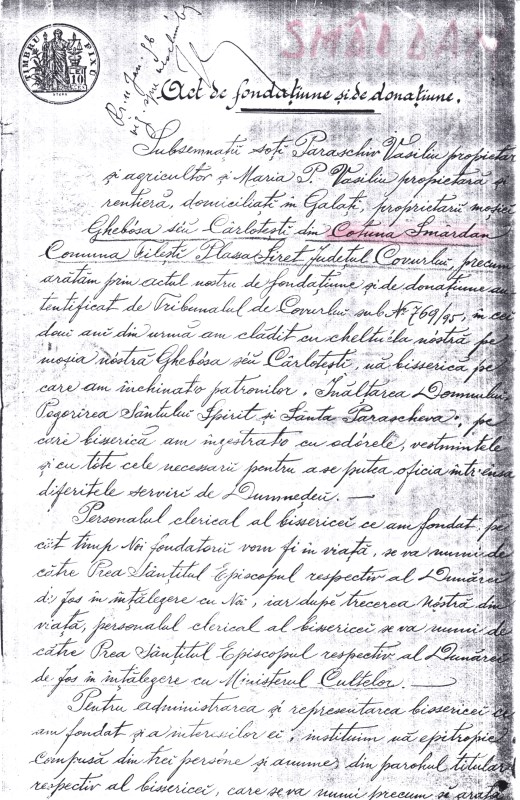 TIMBRU FIX
LEI 10
SMÂRDAN
Act de fondațiune și de donațiune.
Subsemnații soți Paraschiv Vasiliu propietar
și agricultor și Maria P. Vasiliu propietară și
rentieră, domiciliați în Galați, proprietarii moșiei
Ghebósa séu Cârlotești din Cotuna Smârdan
Comuna Filești Plasa Siret Județul Covurlui, precum
arătăm prin actul nostru de fondațiune și de donațiune au
tentificat de Tribunalul de Covurlui sub No 769/95, în cei
doui ani din urmă am clădit cu cheltuéla nóstră pe
moșia nóstră Ghebósa séu Cârlotești, uă bisserica pe
care am închinato patronilor. Înălțarea Domnului,
Pogorirea Sântului Spirit și Sânta Parascheva, pe
care biserică am înzestrato cu odórele, vestmintele
și cu tóte cele necessarii pentru a se putea oficia într'ensa
diferitele servicii de Dumnedeu. —
Personalul clerical al bissericei ce am fondat pe
cât timp Noi fondatorii vom fi în viață, se va numi de
către Prea Sântitul Episcopul respectiv al Dunărei
de Jos în înțălegere cu Noi, iar după trecerea nóstră din
viață, personalul clerical al bissericei se va numi de
către Prea Sântitul Episcopul respectiv al Dunărei
de Jos în înțălegere cu Ministerul Cultelor. —
Pentru administrarea și representarea bissericei ce
am fondat și a interesilor ei, instituim uă epitropie
compusă din trei persóne și anume: din parohul titular
respectiv al bissericei, care se va numi precum se arată